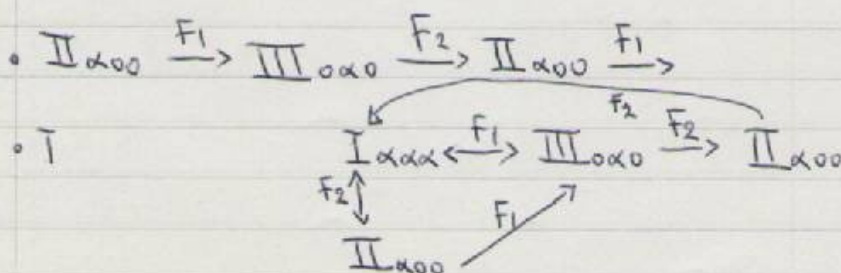 • II α00 F1 → III 0α0 F2 → II α00 F1 →
F2
• I I ααα F1 ↔ III 0α0 F2 → II α00
F2 ↕ F1
II α00